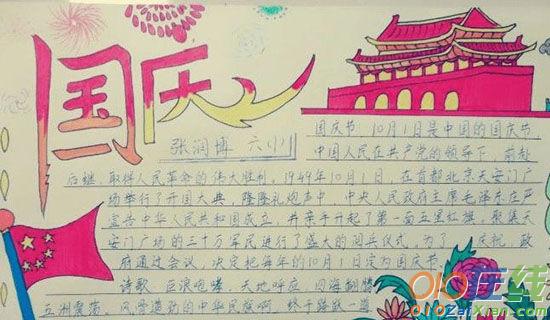 国庆
张润博 六(1)
国庆节 10月1日是中国的国庆节,
中国人民在共产党的领导下,前赴
后继,取得人民革命的伟大胜利,1949年10月1日,在首都北京天安门广
场举行了开国大典,隆隆礼炮声中,中央人民政府主席毛泽东庄严
宣告中华人民共和国成立,并亲手升起了第一面五星红旗,聚集天
安门广场的三十万军民进行了盛大的阅兵仪式,为了 庆祝,政
府通过会议,决定把每年的10月1日定为国庆节。
诗歌 巨浪咆哮,天地呼应 四海翻腾
五洲震荡,风雷激励的中华民族啊 终于
在线
ZaiXian.com